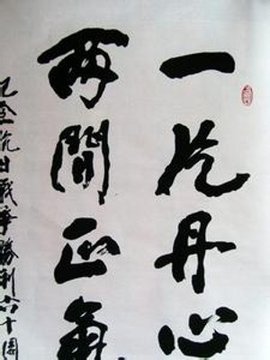 一片丹心
两間正氣
纪念抗日戰爭勝利六十周